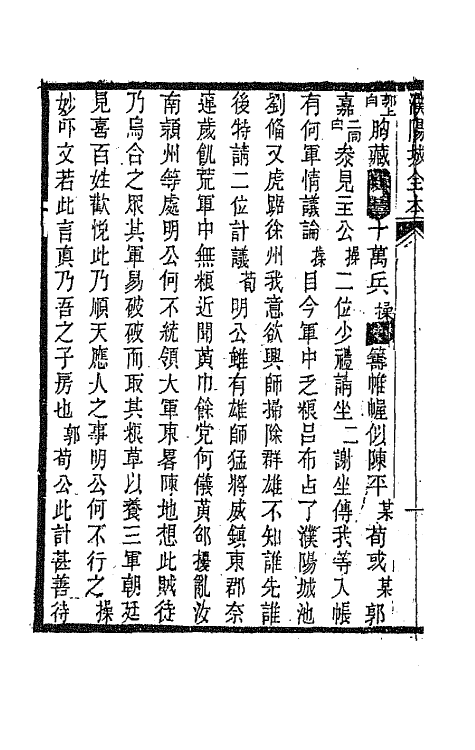 濮陽城全本
郭上白胸藏十萬兵操籌帷幄似陳平某荀或某郭
嘉二同白叅見主公操二位少禮請坐二謝坐傳我等入帳
有何軍情議論操目今軍中乏粮呂布占了濮陽城池
劉俻又虎踞徐州我意欲興師掃除群雄不知誰先誰
後特請二位計議荀明公雖有雄師猛將威鎮東郡奈
連歲飢荒軍中無粮近聞黃巾餘党何儀黃邵擾亂汝
南潁州等處明公何不統領大軍東畧陳地想此賊徒
乃烏合之眾其軍易破破而取其粮草以養三軍朝廷
見喜百姓歡悅此乃順天應人之事明公何不行之操
妙吓文若此言真乃吾之子房也郭荀公此計甚善待